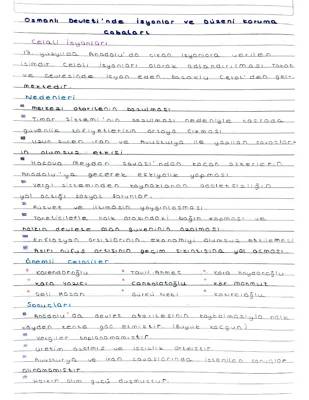 Osmanlı Devleti'nde İsyanlar ve Düzeni Koruma
Çabaları
Celali İsyanları
17. yüzyılda Anadolu'da çıkan isyanlara verilen
isimdir. Celali isyanları olarak adlandırılması Tokat
ve çevresinde isyan eden Bozoklu Celal'den gel-
mektedir.
Nedenleri
Merkezi otoritenin bozulması
Tımar Sistemi'nin bozulması nedeniyle taşrada
güvenlik zafiyetlerinin ortaya çıkması
Uzun süren İran ve Avusturya ile yapılan savaşlar
ın olumsuz etkisi
Haçova Meydan Savaşı'ndan kaçan askerlerin
Anadolu'ya geçerek eşkıyalık yapması
Vergi sisteminden kaynaklanan adaletsizliğin
yol açtığı sosyal sorunlar
Rüşvet ve iltimasın yaygınlaşması
Yöneticilerle halk arasındaki bağın kopması ve
halkın devlete olan güveninin azalması
Enflasyon artışlarının ekonomiyi olumsuz etkilemesi
Aşırı nüfus artışının geçim sıkıntısına yol açması
Önemli Celaliler
Kalenderoğlu
Tavil Ahmet
Kara Haydaroğlu
Kara Yazıcı
Canbolatoğlu
Kör Mahmut
Deli Hasan
Gürcü Nebi
Katırcıoğlu
Sonuçları
Anadolu'da devlet otoritesinin kaybolmasıyla halk
köyden kente göç etmiştir (Büyük Kaçgun)
Vergiler toplanamamıştır
Üretim azalmış ve işsizlik artmıştır
Avusturya ve İran savaşlarında istenilen sonuçlar
alınamamıştır
Halkın alım gücü düşmüştür